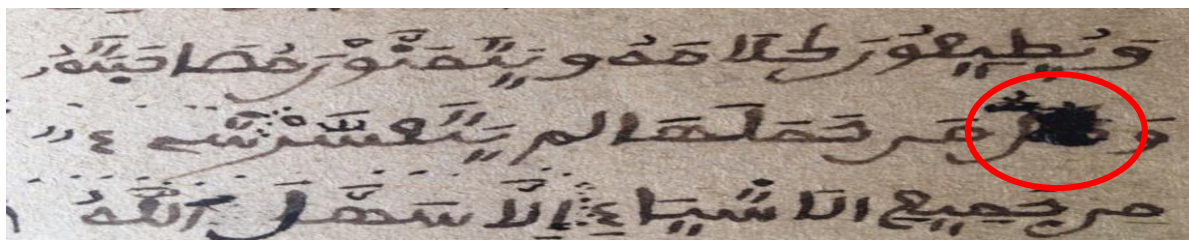 وَيُطِيعُونَ كَلَامَهُ وَيَتَمَنَّوْنَ مُصَاحَبَتَهُ
وَ مَن حَمَلَهَا لم يَتَعَسَّرْ شَےْء
من جَمِيعِ الاَشْيَاءِ إِلَّا سَهَّلَ اللَّهُ